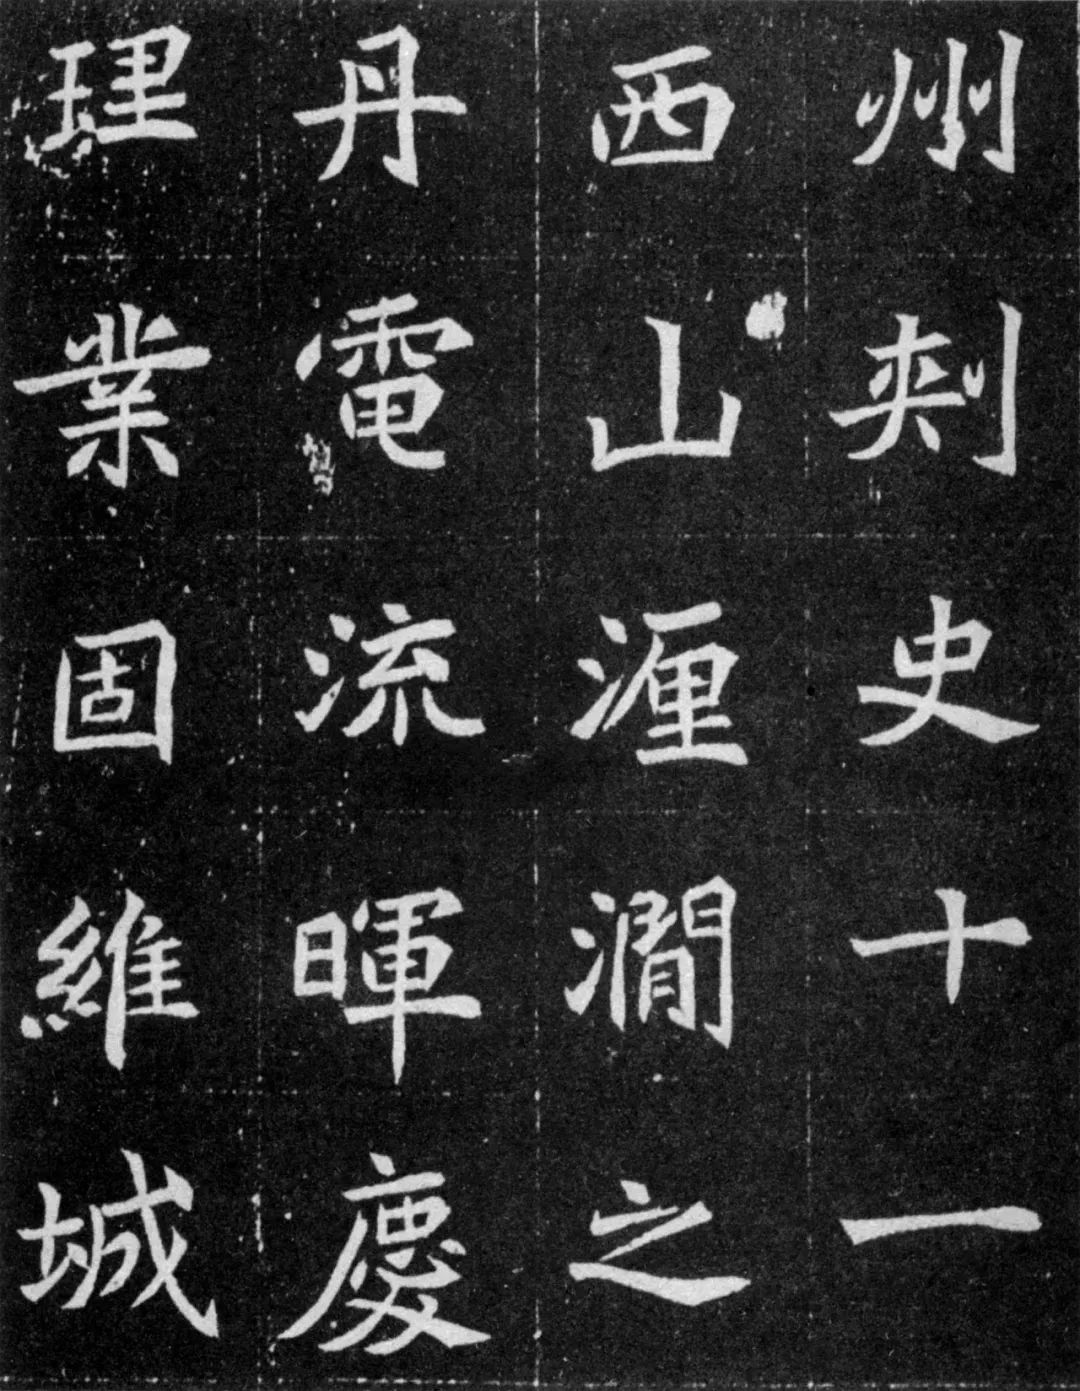 州刺史十一
西山瀍澗之
丹電流暉慶
理業固維城